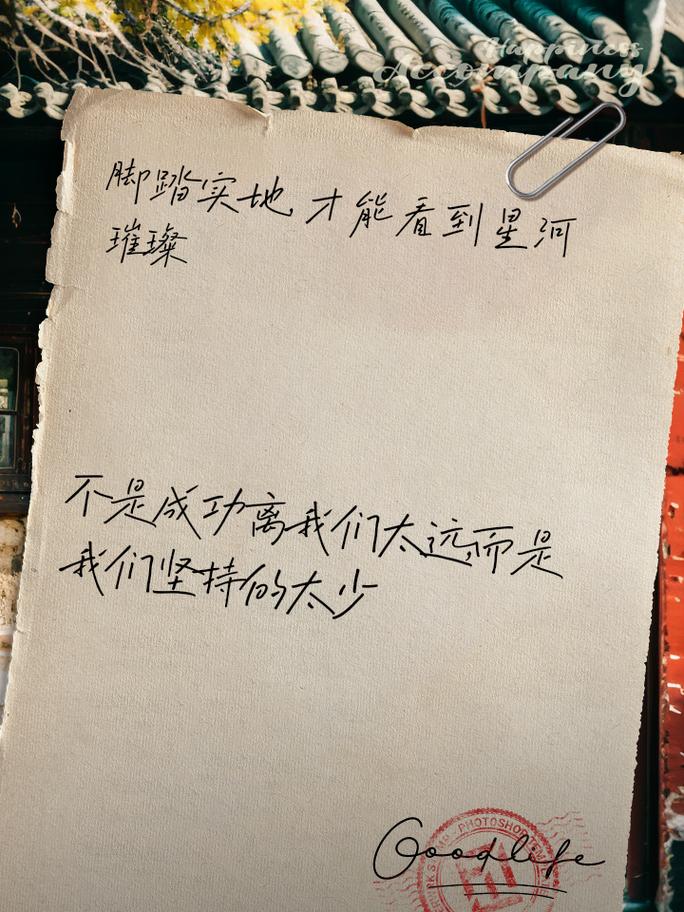 Happiness
Accompany
脚踏实地 才能看到星河
璀璨
不是成功离我们太远,而是
我们坚持的太少
PHOTOSHOP
Goodlife